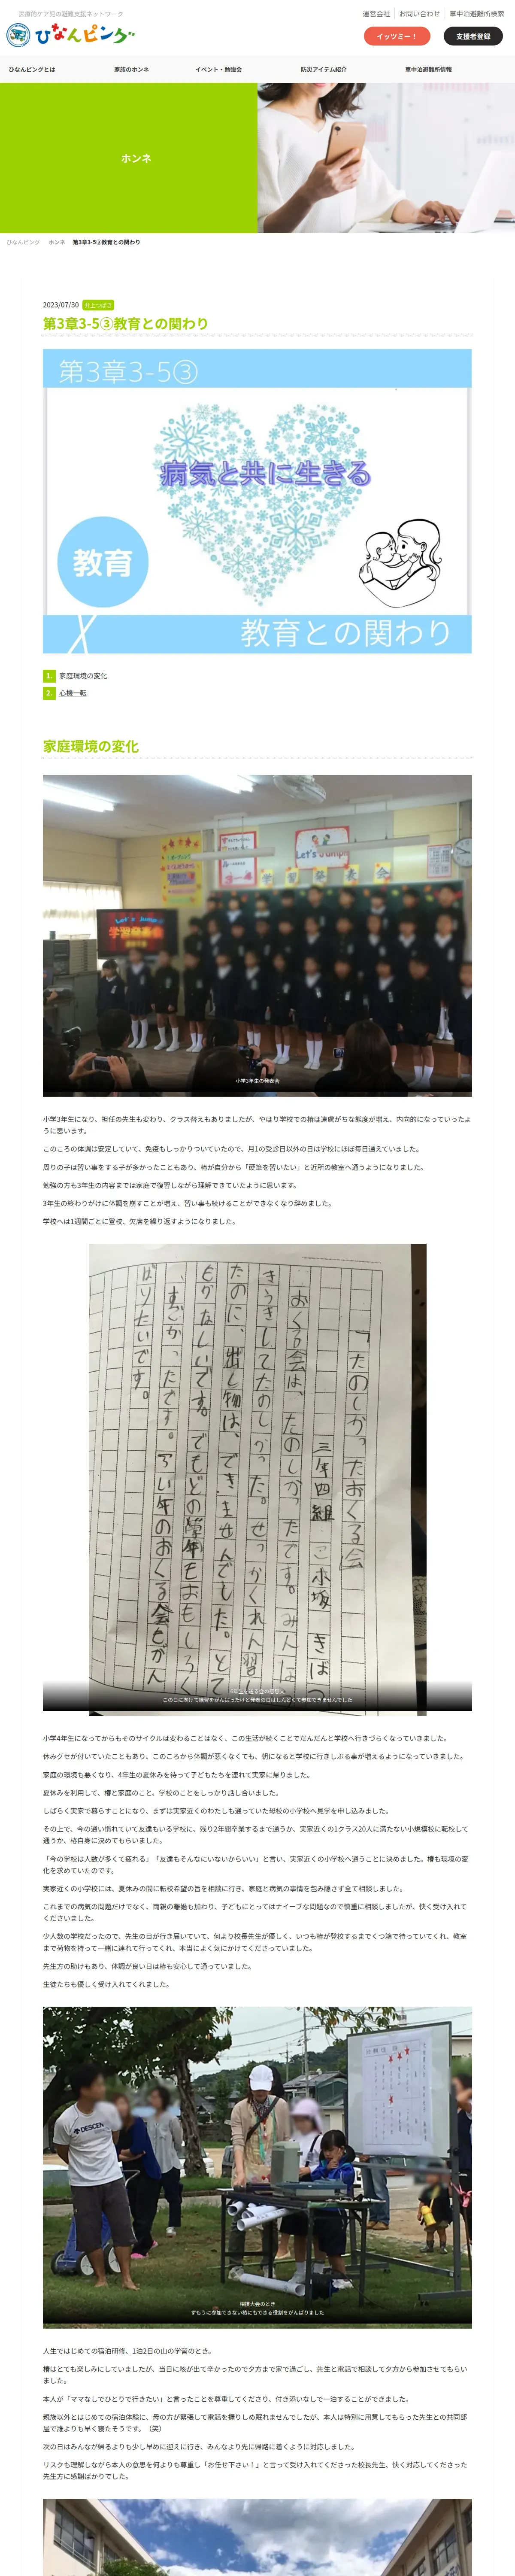 医療的ケア児の避難支援ネットワーク
ひなんピング
運営会社
お問い合わせ
車中泊避難所検索
イッツミー！
支援者登録
ひなんピングとは
家族のホンネ
イベント・勉強会
防災アイテム紹介
車中泊避難所情報
ホンネ
ひなんピング
ホンネ
第3章3-5③教育との関わり
2023/07/30
井上つばさ
第3章3-5③教育との関わり
第3章3-5③
病気と共に生きる
教育
教育との関わり
1. 家庭環境の変化
2. 心機一転
家庭環境の変化
Let's Jump!!
学習発表会
小学3年生の発表会
小学3年生になり、担任の先生も変わり、クラス替えもありましたが、やはり学校での椿は遠慮がちな態度が増え、内向的になっていったよ
うに思います。
このころの体調は安定していて、免疫もしっかりついていたので、月1の受診日以外の日は学校にほぼ毎日通えていました。
周りの子は習い事をする子が多かったこともあり、椿が自分から「硬筆を習いたい」と近所の教室へ通うようになりました。
勉強の方も3年生の内容までは家庭で復習しながら理解できていたように思います。
3年生の終わりがけに体調を崩すことが増え、習い事も続けることができなくなり辞めました。
学校へは1週間ごとに登校、欠席を繰り返すようになりました。
「たのしかったおくる会」
三年四組 小坂 きばっ
おくる会は、たのしかったです。みんな
きょうきしてたのしかった。せっかくれん
たのに、出し物は、できませんでした。
もかなしいです。でもどの学年もおもしろく
、すごかったです。らい年のおくる会もがん
ばりたいです。
6年生を送る会の感想文
この日に向けて練習をがんばったけど発表の日はしんどくて参加できませんでした
小学4年生になってからもそのサイクルは変わることはなく、この生活が続くことでだんだんと学校へ行きづらくなっていきました。
休みグセが付いていたこともあり、このころから体調が悪くなくても、朝になると学校に行きしぶる事が増えるようになっていきました。
家庭の環境も悪くなり、4年生の夏休みを待って子どもたちを連れて実家に帰りました。
夏休みを利用して、椿と家庭のこと、学校のことをしっかり話し合いました。
しばらく実家で暮らすことになり、まずは実家近くのわたしも通っていた母校の小学校へ見学を申し込みました。
その上で、今の通い慣れていて友達もいる学校に、残り2年間卒業するまで通うか、実家近くの1クラス20人に満たない小規模校に転校して
通うか、椿自身に決めてもらいました。
「今の学校は人数が多くて疲れる」「友達もそんなにいないからいい」と言い、実家近くの小学校へ通うことに決めました。椿も環境の変
化を求めていたのです。
実家近くの小学校には、夏休みの間に転校希望の旨を相談に行き、家庭と病気の事情を包み隠さず全て相談しました。
これまでの病気の問題だけでなく、両親の離婚も加わり、子どもにとってはナイーブな問題なので慎重に相談しましたが、快く受け入れて
くださいました。
少人数の学校だったので、先生の目が行き届いていて、何より校長先生が優しく、いつも椿が登校するまでくつ箱で待っていてくれ、教室
まで荷物を持って一緒に連れて行ってくれ、本当によく気にかけてくださっていました。
先生方の助けもあり、体調が良い日は椿も安心して通っていました。
生徒たちも優しく受け入れてくれました。
DESCEN
相撲大会のとき
すもうに参加できない椿にもできる役割をがんばりました
人生ではじめての宿泊研修、1泊2日の山の学習のとき。
椿はとても楽しみにしていましたが、当日に咳が出て辛かったので夕方まで家で過ごし、先生と電話で相談して夕方から参加させてもらい
ました。
本人が「ママなしでひとりで行きたい」と言ったことを尊重してくださり、付き添いなしで一泊することができました。
親族以外とはじめての宿泊体験に、母の方が緊張して電話を握りしめ眠れませんでしたが、本人は特別に用意してもらった先生との共同部
屋で誰よりも早く寝たそうです。（笑）
次の日はみんなが帰るよりも少し早めに迎えに行き、みんなより先に帰路に着くように対応しました。
リスクも理解しながら本人の意思を何よりも尊重し「お任せ下さい！」と言って受け入れてくださった校長先生、快く対応してくださった
先生方に感謝ばかりでした。